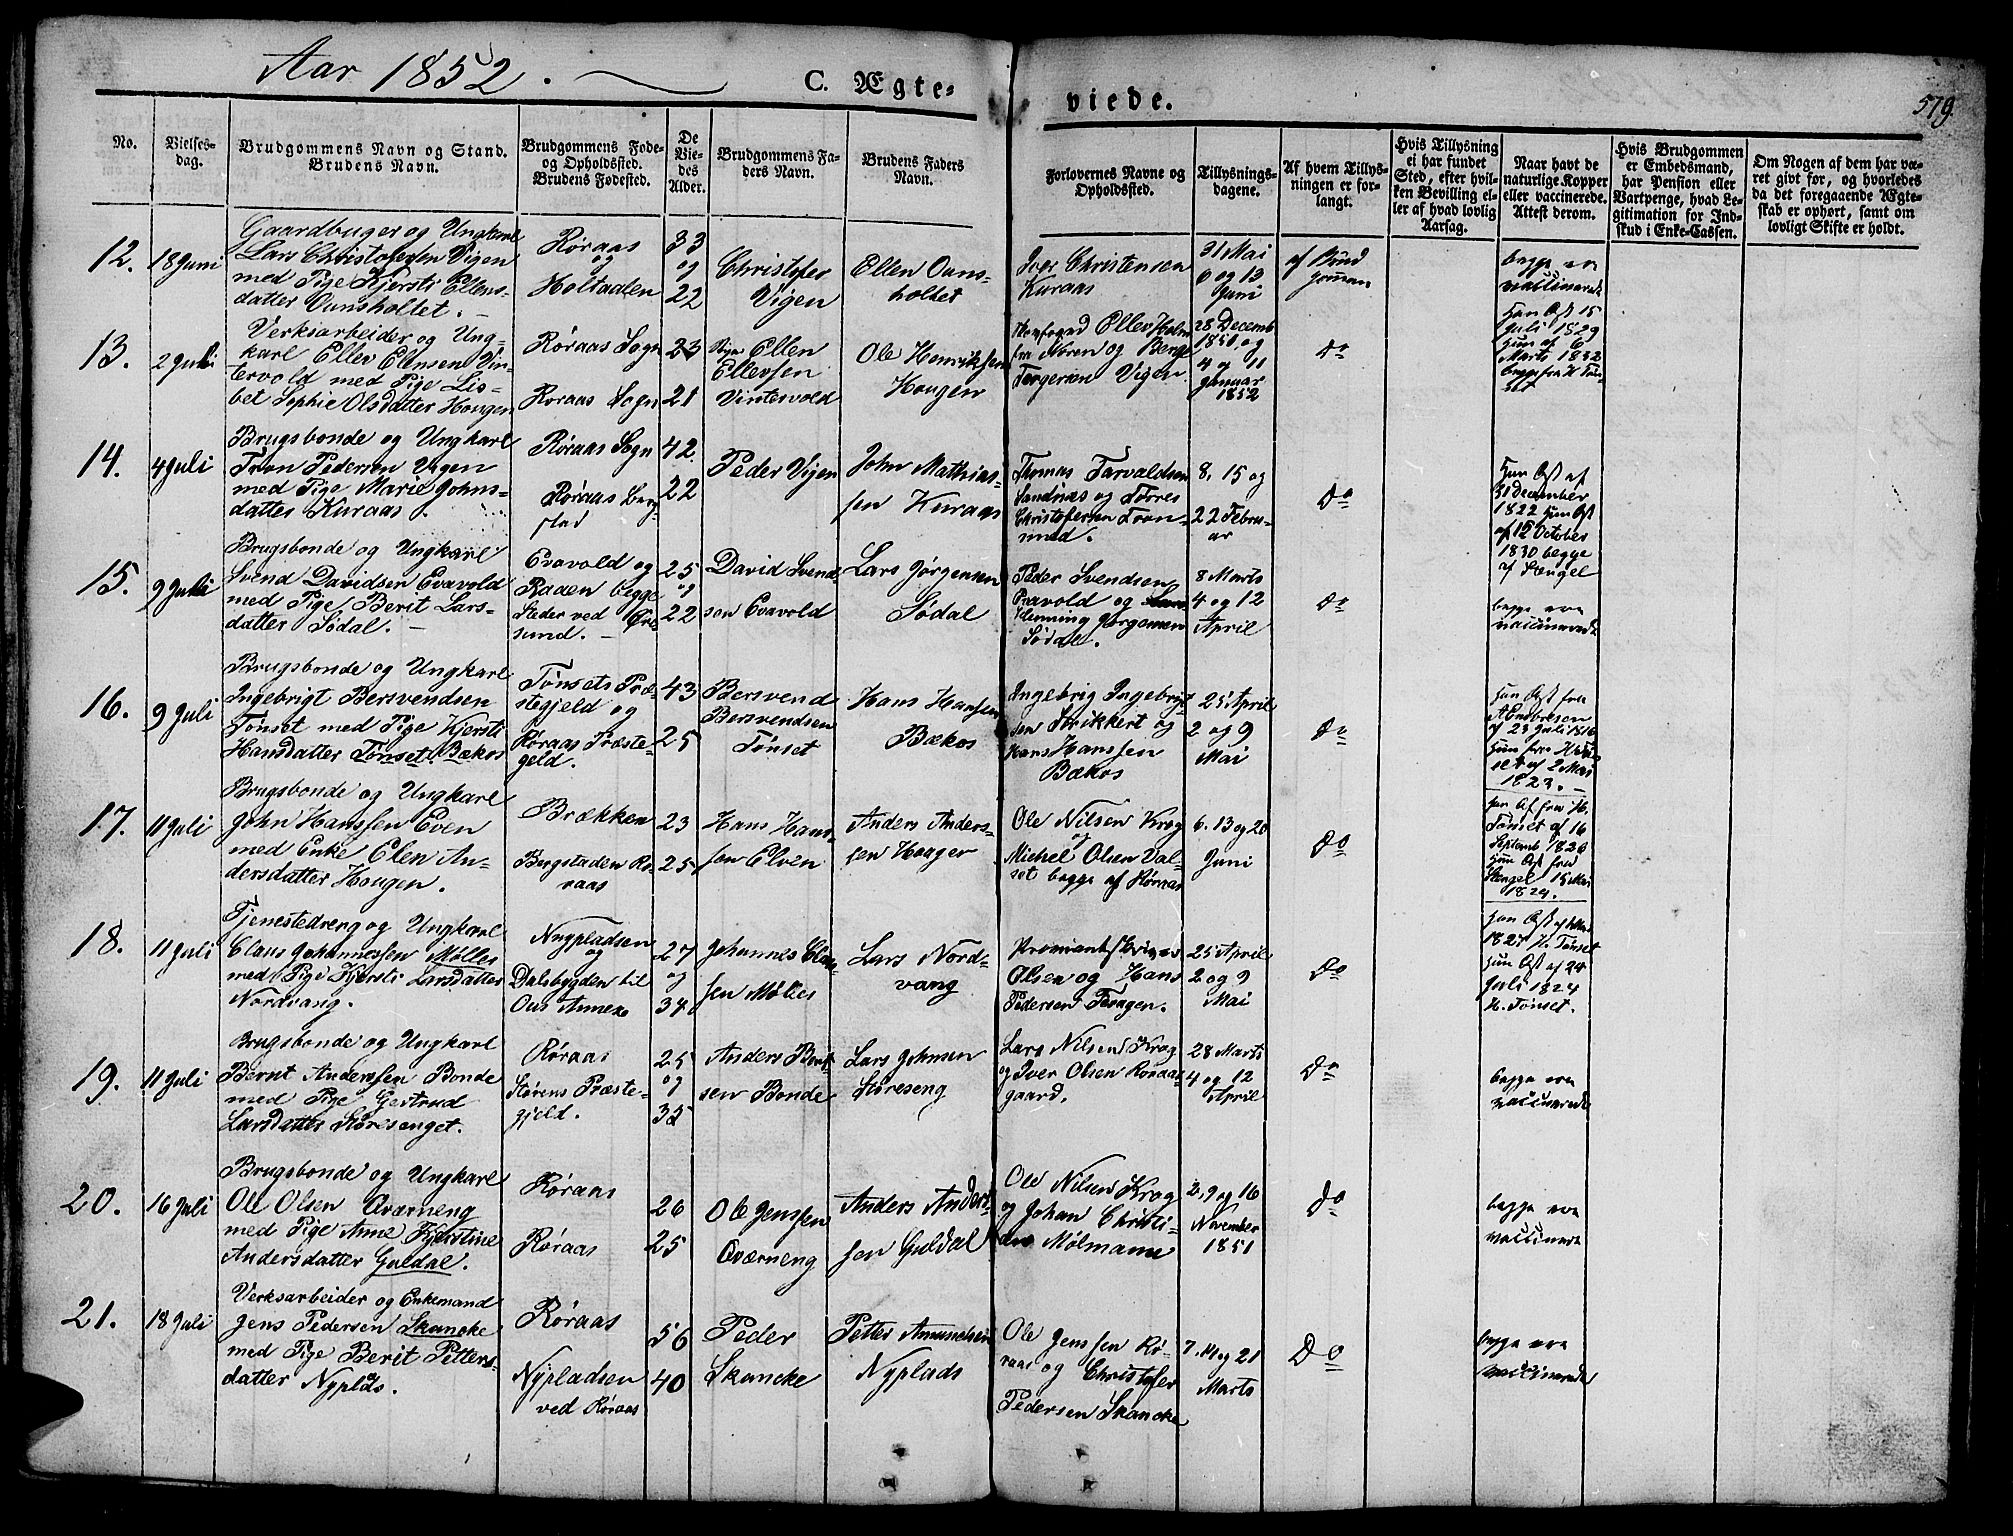 Aar 1852.
C. Ægte-
viede.
579
No.
Vielses-
dag.
Brudgommens Navn og Stand.
Brudens Navn.
Brudgommens Føde-
og Opholdsted.
Brudens Fødested.
De
Vie-
des
Alder.
Brudgommens Fa-
ders Navn.
Brudens Faders
Navn.
Forlovernes Navne og
Opholdsted.
Tillysnings-
dagene.
Af hvem Tillys-
ningen er for-
langt.
Hvis Tillysning
ei har fundet
Sted, efter hvil-
ken Bevilling el-
ler af hvad lovlig
Aarsag.
Naar havt de
naturlige Kopper
eller vaccinerede.
Attest derom.
Hvis Brudgommen
er Embedsmand,
har Pension eller
Vartpenge, hvad Le-
gitimation for Ind-
skud i Enke-Cassen.
Om Nogen af dem har væ-
ret givt før, og hvorledes
da det foregaaende Ægte-
skab er ophørt, samt om
lovligt Skifte er holdt.
12.
18 Juni
Gaardbruger og Ungkarl
Lars Christofersen Vigen
med Pige Kjersti Ellens-
datter Ounsholtet.
Røraas
og
Holtaalen
33
og
22
Christofer
Vigen
Ellen Ouns-
holtet
Iver Christensen
Kuraas
31 Mai
6 og 13
Juni
af Brud
gomen
begge ere
vaccinerede
13.
2 Juli
Verksarbeider og Ung-
karl Ellev Ellensen Vin-
tervold med Pige Lis-
bet Sophie Olsdatter Hougen
Røraas Sogn
Røraas Sogn
23
21
Ellen
Ellevsen
Vintervold
Ole Henriksen
Hougen
Ellev Holm
fra Noren og Berge
Torgersen Vigen
28 Decemb
1851 og
4 og 11
Januar
1852
Do
Han Ast 15
Juli 1829
Hun af 6
Marts 1832
begge fra H Tøn-
set
14.
4 Juli
Brugsbonde og Ungkarl
Tron Pedersen Vigen
med Pige Marie Johns-
datter Kuraas.
Røraas Sogn
Røraas Berg-
stad
42.
22
Peder Vigen
John Mathias-
sen Kuraas
Thomas Tarvaldsen
Sandnæs og Tøres
Christofersen Tron-
smed.
8, 15 og
22 Febru-
ar
Do
Han Ast af
31 December
1822 Hun Ast
af 15 October
1830 begge
af Stengel
15.
9 Juli
Brugsbonde og Ungkarl
Svend Davidsen Evavold
med Pige Berit Lars-
datter Sødal.
Evavold og
Raaen begge
Stæder ved Øre
sund.
25
og
22
David Svend
sen Evavold
Lars Jørgensen
Sødal
Peder Svendsen
Evavold og
Henning Jørgensen
Sødal.
8 Marts
4 og 12
April
Do
begge ere
vaccinerede
16.
9 Juli
Brugsbonde og Ungkarl
Ingebrigt Bersvendsen
Tønset med Pige Kjersti
Hansdatter Tønset Bækos
Tønsets Præ-
stegjeld og
Røraas Præste-
geld.
43
25
Bersvend
Bersvendsen
Tønset
Hans Hansen
Bækos
Ingebrig Ingebrigt
sen Strikkert og
Hans Hanssen
Bækos
25 April
2 og 9
Mai
Do
Han Ast fra
af 23 Juli 1816
Hun fra H Tøn
set af 2 Mai
1823.
17.
11 Juli
Brugsbonde og Ungkarl
John Hanssen Even
med Enke Elen An-
dersdatter Hougen.
Brækken
Bergstaden Rø-
raas
23
25
Hans Hans-
sen Elven
Anders Anders-
sen Houger
Ole Nilsen Krog
og
Michel Olsen Val-
set begge af Røraas
6. 13 og 20
Juni
Do
Han Af fra H.
Tønset af 16
Septemb 1820
Hun Ast fra
Stengel 15 Mai
1824.
18.
11 Juli
Tjenestedreng og Ungkarl
Claus Johannessen Møller
med Pige Kjersti Larsdatter
Nordvang.
Nypladsen
og
Dalsbygden til
Ous Annex
27
og
34
Johannes Clau-
sen Møller
Lars Nord-
vang
Proviantskriver
Olsen og Hans
Pedersen Feragen.
25 April
2 og 9
Mai
Do
1827 H. Tønset
Hun Ast af 24
Juli 1824
H. Tønset.
19.
11 Juli
Brugsbonde og Ungkarl
Bernt Anderssen Bonde
med Pige Gertrud
Larsdatter Støresenget.
Røraas
Størens Præste-
gjeld.
25
og
35
Anders Bernt
sen Bonde
Lars Johnsen
Støreseng
Lars Nilsen Krog
og Iver Olsen Røraas
gaard.
28 Marts
4 og 12
April
Do
begge ere
vaccinerede
20.
16 Juli
Brugsbonde og Ungkarl
Ole Olsen Qværneng
med Pige Anne Kjerstine
Andersdatter Guldal.
Røraas
Røraas
26
25
Ole Jenssen
Qværneng
Anders Anders
sen Guldal
Ole Nilsen Krog
og Johan Christi-
an Mølmann
2, 9 og 16
November
1851
Do
begge ere
vaccinerede
21.
18 Juli
Verksarbeider og Enkemand
Jens Pedersen Skancke
med Pige Berit Petters-
datter Nyplads.
Røraas
Nypladsen
ved Røraas
56
40
Peder
Skancke
Petter Amundsen
Nyplads
Ole Jenssen Rø-
raas og Christofer
Pedersen Skancke
7. 14 og 21
Marts
Do
begge ere
vaccinerede